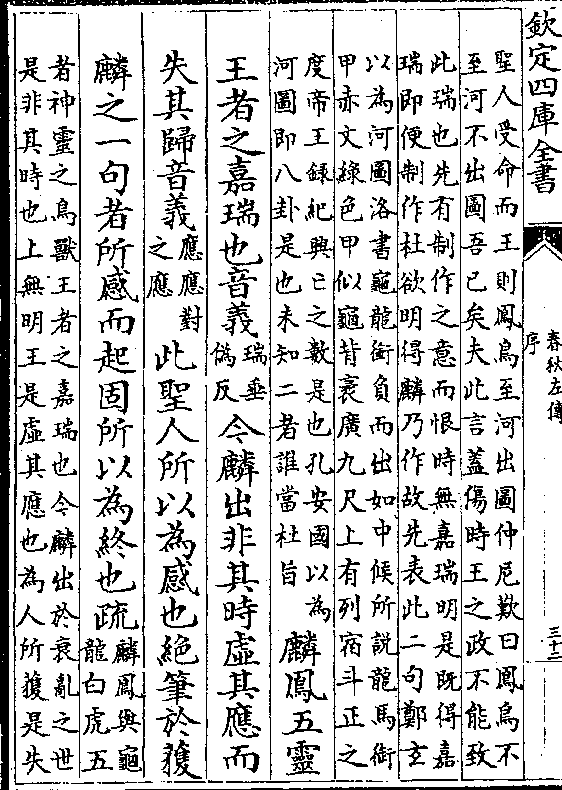 欽定四庫全書
春秋左傳
序
三十二
聖人受命而王則鳳鳥至河出圖仲尼歎曰鳳鳥不
至河不出圖吾已矣夫此言蓋傷時王之政不能致
此瑞也先有制作之意而恨時無嘉瑞明是既得嘉
瑞即便制作杜欲明得麟乃作故先表此二句鄭玄
以為河圖洛書龜龍銜負而出如中候所說龍馬銜
甲赤文綠色甲似龜背袤廣九尺上有列宿斗正之
度帝王録紀興亡之數是也孔安國以為
河圖即八卦是也未知二者誰當杜旨
麟鳳五靈
王者之嘉瑞也音義
瑞垂
偽反
今麟出非其時虛其應而
失其歸音義
應應對
之應
此聖人所以為感也絕筆於獲
麟之一句者所感而起固所以為終也疏
麟鳳與龜
龍白虎五
者神靈之鳥獸王者之嘉瑞也今麟出於衰亂之世
是非其時也上無明王是虛其應也為人所獲是失